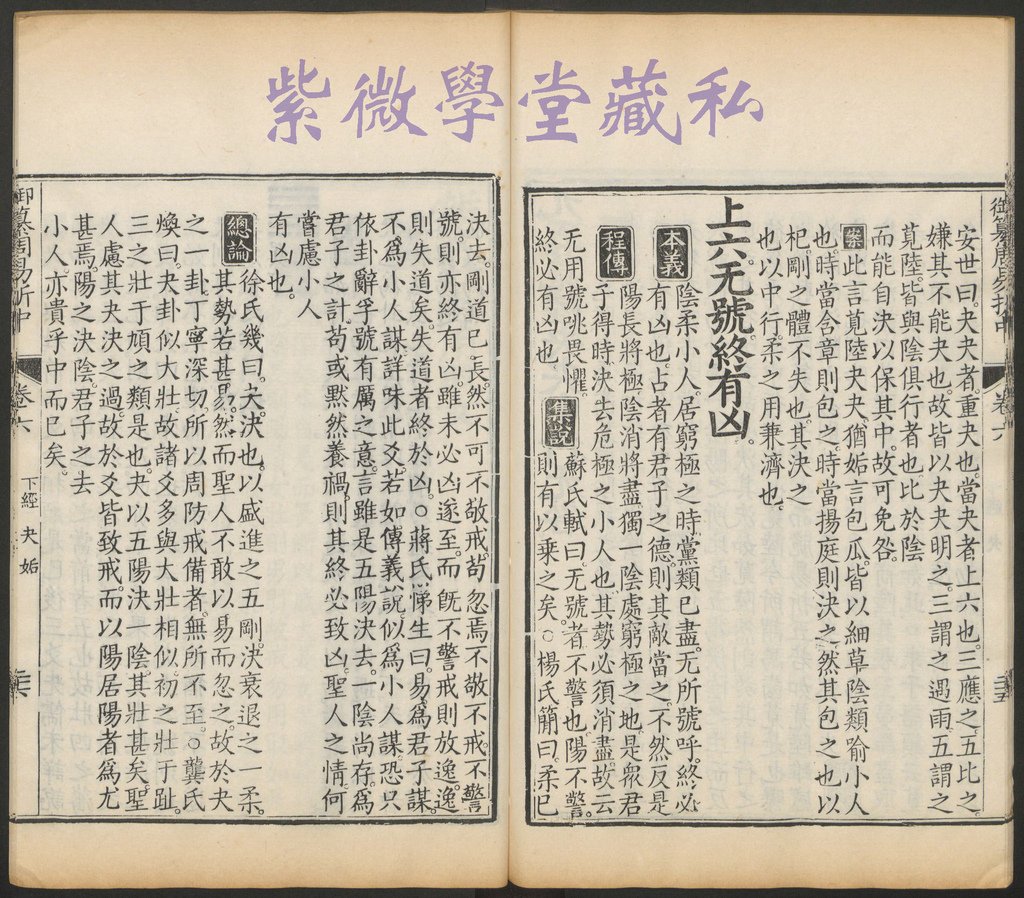 紫微學堂藏私
安世曰。夬夬者。重夬也。當夬者。上六也。三應之。五比之。
嫌其不能夬也。故皆以夬夬明之。三謂之遇雨。五謂之
莧陸。皆與陰俱行者也。比於陰
而能自決以保其中。故可免咎。
案此言莧陸夬夬。猶姤言包瓜。皆以細草陰類喻小人
也。時當含章則包之。時當揚庭則決之。然其包之也。以
杞。剛之體不失也。其決之
也。以中行。柔之用兼濟也。
上六。无號。終有凶。
本義 陰柔小人。居窮極之時。黨類已盡。无所號呼。終必
有凶也。占者有君子之德。則其敵當之。不然反是
程傳 陽長將極。陰消將盡。獨一陰處窮極之地。是衆君
子得時決去危極之小人也。其勢必須消盡。故云
无用號咷畏懼。 集說 蘇氏軾曰。无號者。不警也。陽不警。
終必有凶也。 則有以乘之矣。○楊氏簡曰。柔已
卷六
決去。剛道已長。然不可不敬戒。苟忽焉不敬不戒。不警
號。則亦終有凶。雖未必凶遂至。而旣不警戒則放逸。逸
則失道矣。失道者終於凶。○蔣氏悌生曰。易爲君子謀。
不爲小人謀。詳味此爻。若如傳義說。似爲小人謀。恐只
依卦辭孚號有厲之意。言雖是五陽決去一陰尚存。爲
君子之計。苟或默然養禍。則其終必致凶。聖人之情。何
嘗慮小人
有凶也。
總論 徐氏幾曰。夬。決也。以盛進之五剛。決衰退之一柔。
其勢若甚易。然而聖人不敢以易而忽之。故於夬
之一卦。丁寧深切。所以周防戒備者。無所不至。○龔氏
煥曰。夬卦似大壯。故諸爻多與大壯相似。初之壯于趾。
三之壯于頄之類是也。夬以五陽決一陰。其壯甚矣。聖
人慮其夬決之過。故於爻皆致戒。而以陽居陽者爲尤
甚焉。陽之決陰。君子之去
小人。亦貴乎中而已矣。
御纂周易折中
卷六
下經 夬 姤